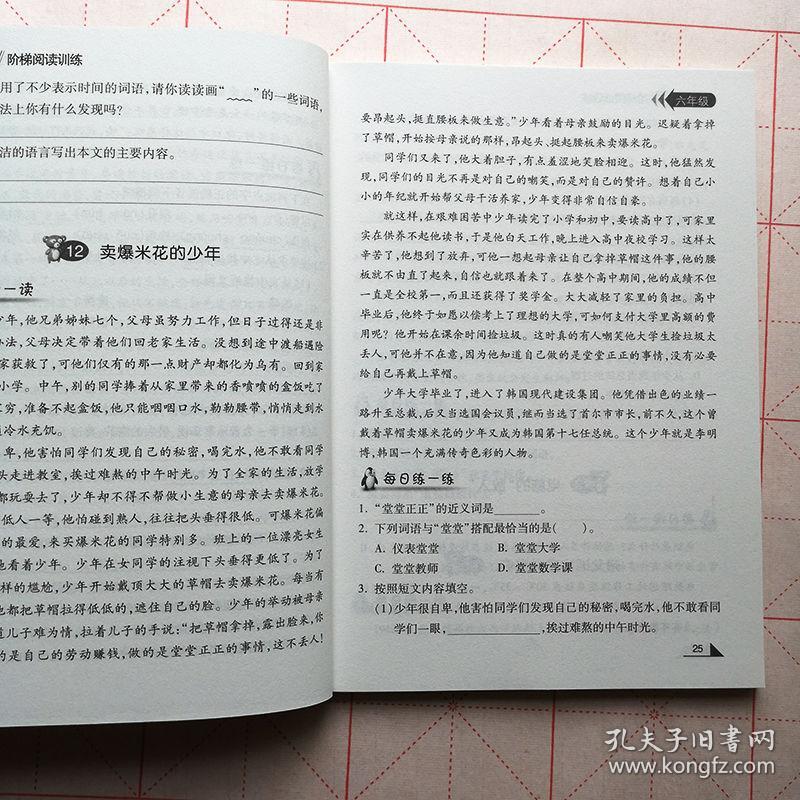 阶梯阅读训练
用了不少表示时间的词语,请你读读画“ ”的一些词语,
法上你有什么发现吗?
洁的语言写出本文的主要内容。
12 卖爆米花的少年
一读
少年,他兄弟姊妹七个,父母虽努力工作,但日子过得还是非
办法,父母决定带着他们回老家生活。没想到途中渡船遇险
家获救了,可他们仅有的那一点财产却都化为乌有。回到家
小学。中午,别的同学捧着从家里带来的香喷喷的盒饭吃了
穷,准备不起盒饭,他只能咽咽口水,勒勒腰带,悄悄走到水
冷水充饥。
卑,他害怕同学们发现自己的秘密,喝完水,他不敢看同学
头走进教室,挨过难熬的中午时光。为了全家的生活,放学
都玩耍去了,少年却不得不帮做小生意的母亲去卖爆米花。
低人一等,他怕碰到熟人,往往把头垂得很低。可爆米花偏
的最爱,来买爆米花的同学特别多。班上的一位漂亮女生
他看着少年。少年在女同学的注视下头垂得更低了。为了
样的尴尬,少年开始戴顶大大的草帽去卖爆米花。每当有
他都把草帽拉得低低的,遮住自己的脸。少年的举动被母亲
道儿子难为情,拉着儿子的手说:“把草帽拿掉,露出脸来,你
的是自己的劳动赚钱,做的是堂堂正正的事情,这不丢人!
六年级
要昂起头,挺直腰板来做生意。”少年看着母亲鼓励的目光。迟疑着拿掉
了草帽,开始按母亲说的那样,昂起头、挺起腰板来卖爆米花。
同学们又来了,他大着胆子,有点羞涩地笑脸相迎。这时,他猛然发
现,同学们的目光不再是对自己的嘲笑,而是对自己的赞许。想着自己小
小的年纪就开始帮父母干活养家,少年变得非常自信自豪。
就这样,在艰难困苦中少年读完了小学和初中,要读高中了,可家里
实在供养不起他读书,于是他白天工作,晚上进入高中夜校学习。这样太
辛苦了,他想到了放弃,可他一想起母亲让自己拿掉草帽这件事,他的腰
板就不由直了起来,自信也就跟着来了。在整个高中期间,他的成绩不但
一直是全校第一,而且还获得了奖学金。大大减轻了家里的负担。高中
毕业后,他终于如愿以偿考上了理想的大学,可如何支付大学里高额的费
用呢?他开始在课余时间捡垃圾。这时真的有人嘲笑他大学生捡垃圾太
丢人,可他并不在意,因为他知道自己做的是堂堂正正的事情,没有必要
给自己再戴上草帽。
少年大学毕业了,进入了韩国现代建设集团。他凭借出色的业绩一
路升至总裁,后又当选国会议员,继而当选了首尔市市长,前不久,这个曾
戴着草帽卖爆米花的少年又成为韩国第十七任总统。这个少年就是李明
博,韩国一个充满传奇色彩的人物。
每日练一练
1. “堂堂正正”的近义词是________。
2. 下列词语与“堂堂”搭配最恰当的是( )。
A. 仪表堂堂 B. 堂堂大学
C. 堂堂教师 D. 堂堂数学课
3. 按照短文内容填空。
(1)少年很自卑,他害怕同学们发现自己的秘密,喝完水,他不敢看同
学们一眼,________,挨过难熬的中午时光。
25
孔夫子旧书网
www.kongfz.com